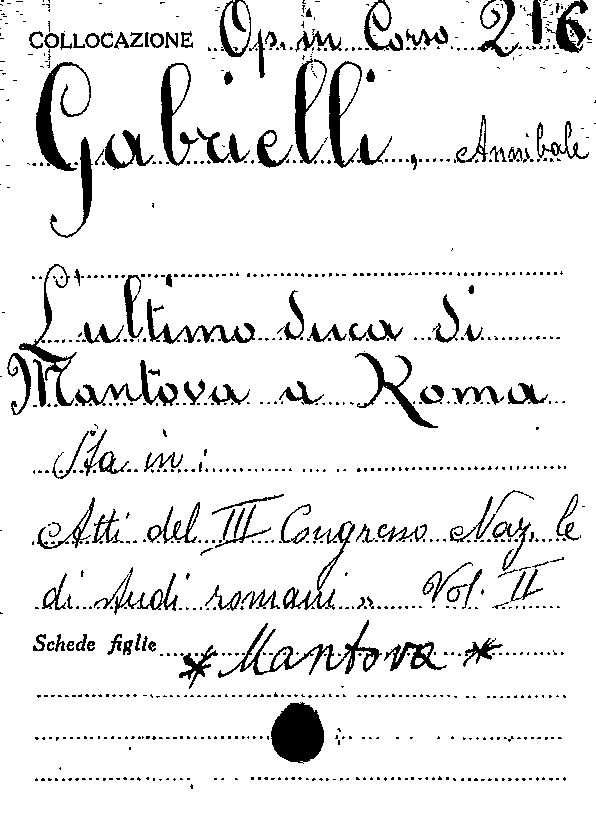 COLLOCAZIONE Op. in Corso 216
Gabrielli, Annibale
L'ultimo duca di
Mantova a Roma
Sta in:
Atti del III Congresso Naz.le
di studi romani „ Vol. II
Schede figlie * Mantova *